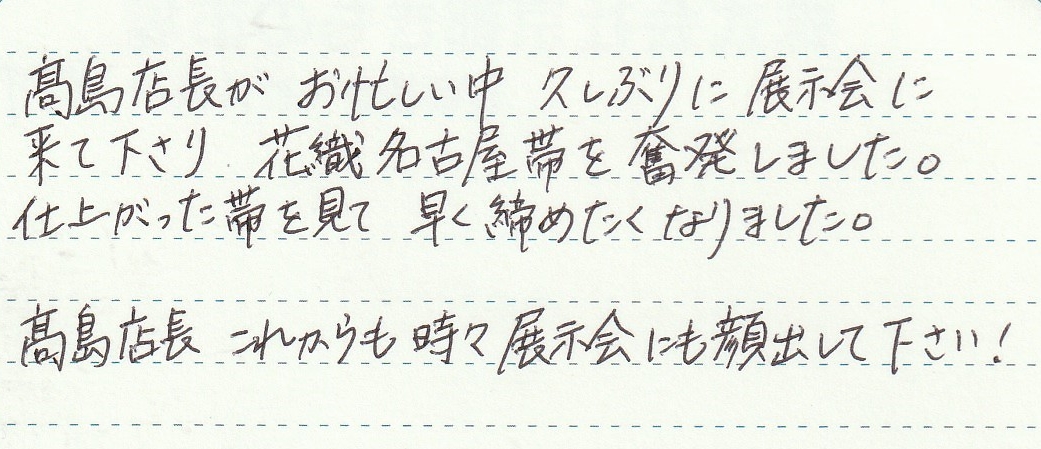 髙島店長が お忙しい中 久しぶりに 展示会に
来て下さり 花織名古屋帯を奮発しました。
仕上がった帯を見て 早く締めたくなりました。
髙島店長 これからも時々展示会にも顔出して下さい!